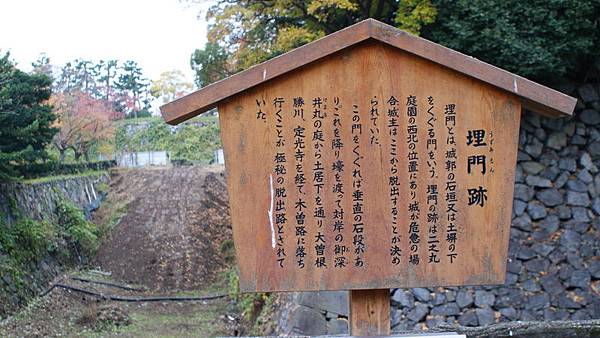 埋門跡
うずみもん
埋門とは、城郭の石垣又は土塀の下
をくぐる門をいう。埋門の跡は二之丸
庭園の西北の位置にあり城が危急の場
合城主はここから脱出することが決め
られていた。
この門をくぐれば垂直の石段があ
りこれを降り壕を渡って対岸の御深
井丸の庭から土居下を通り大曽根
勝川、定光寺を経て、木曽路に落ち
行くことが極秘の脱出路とされて
いた。